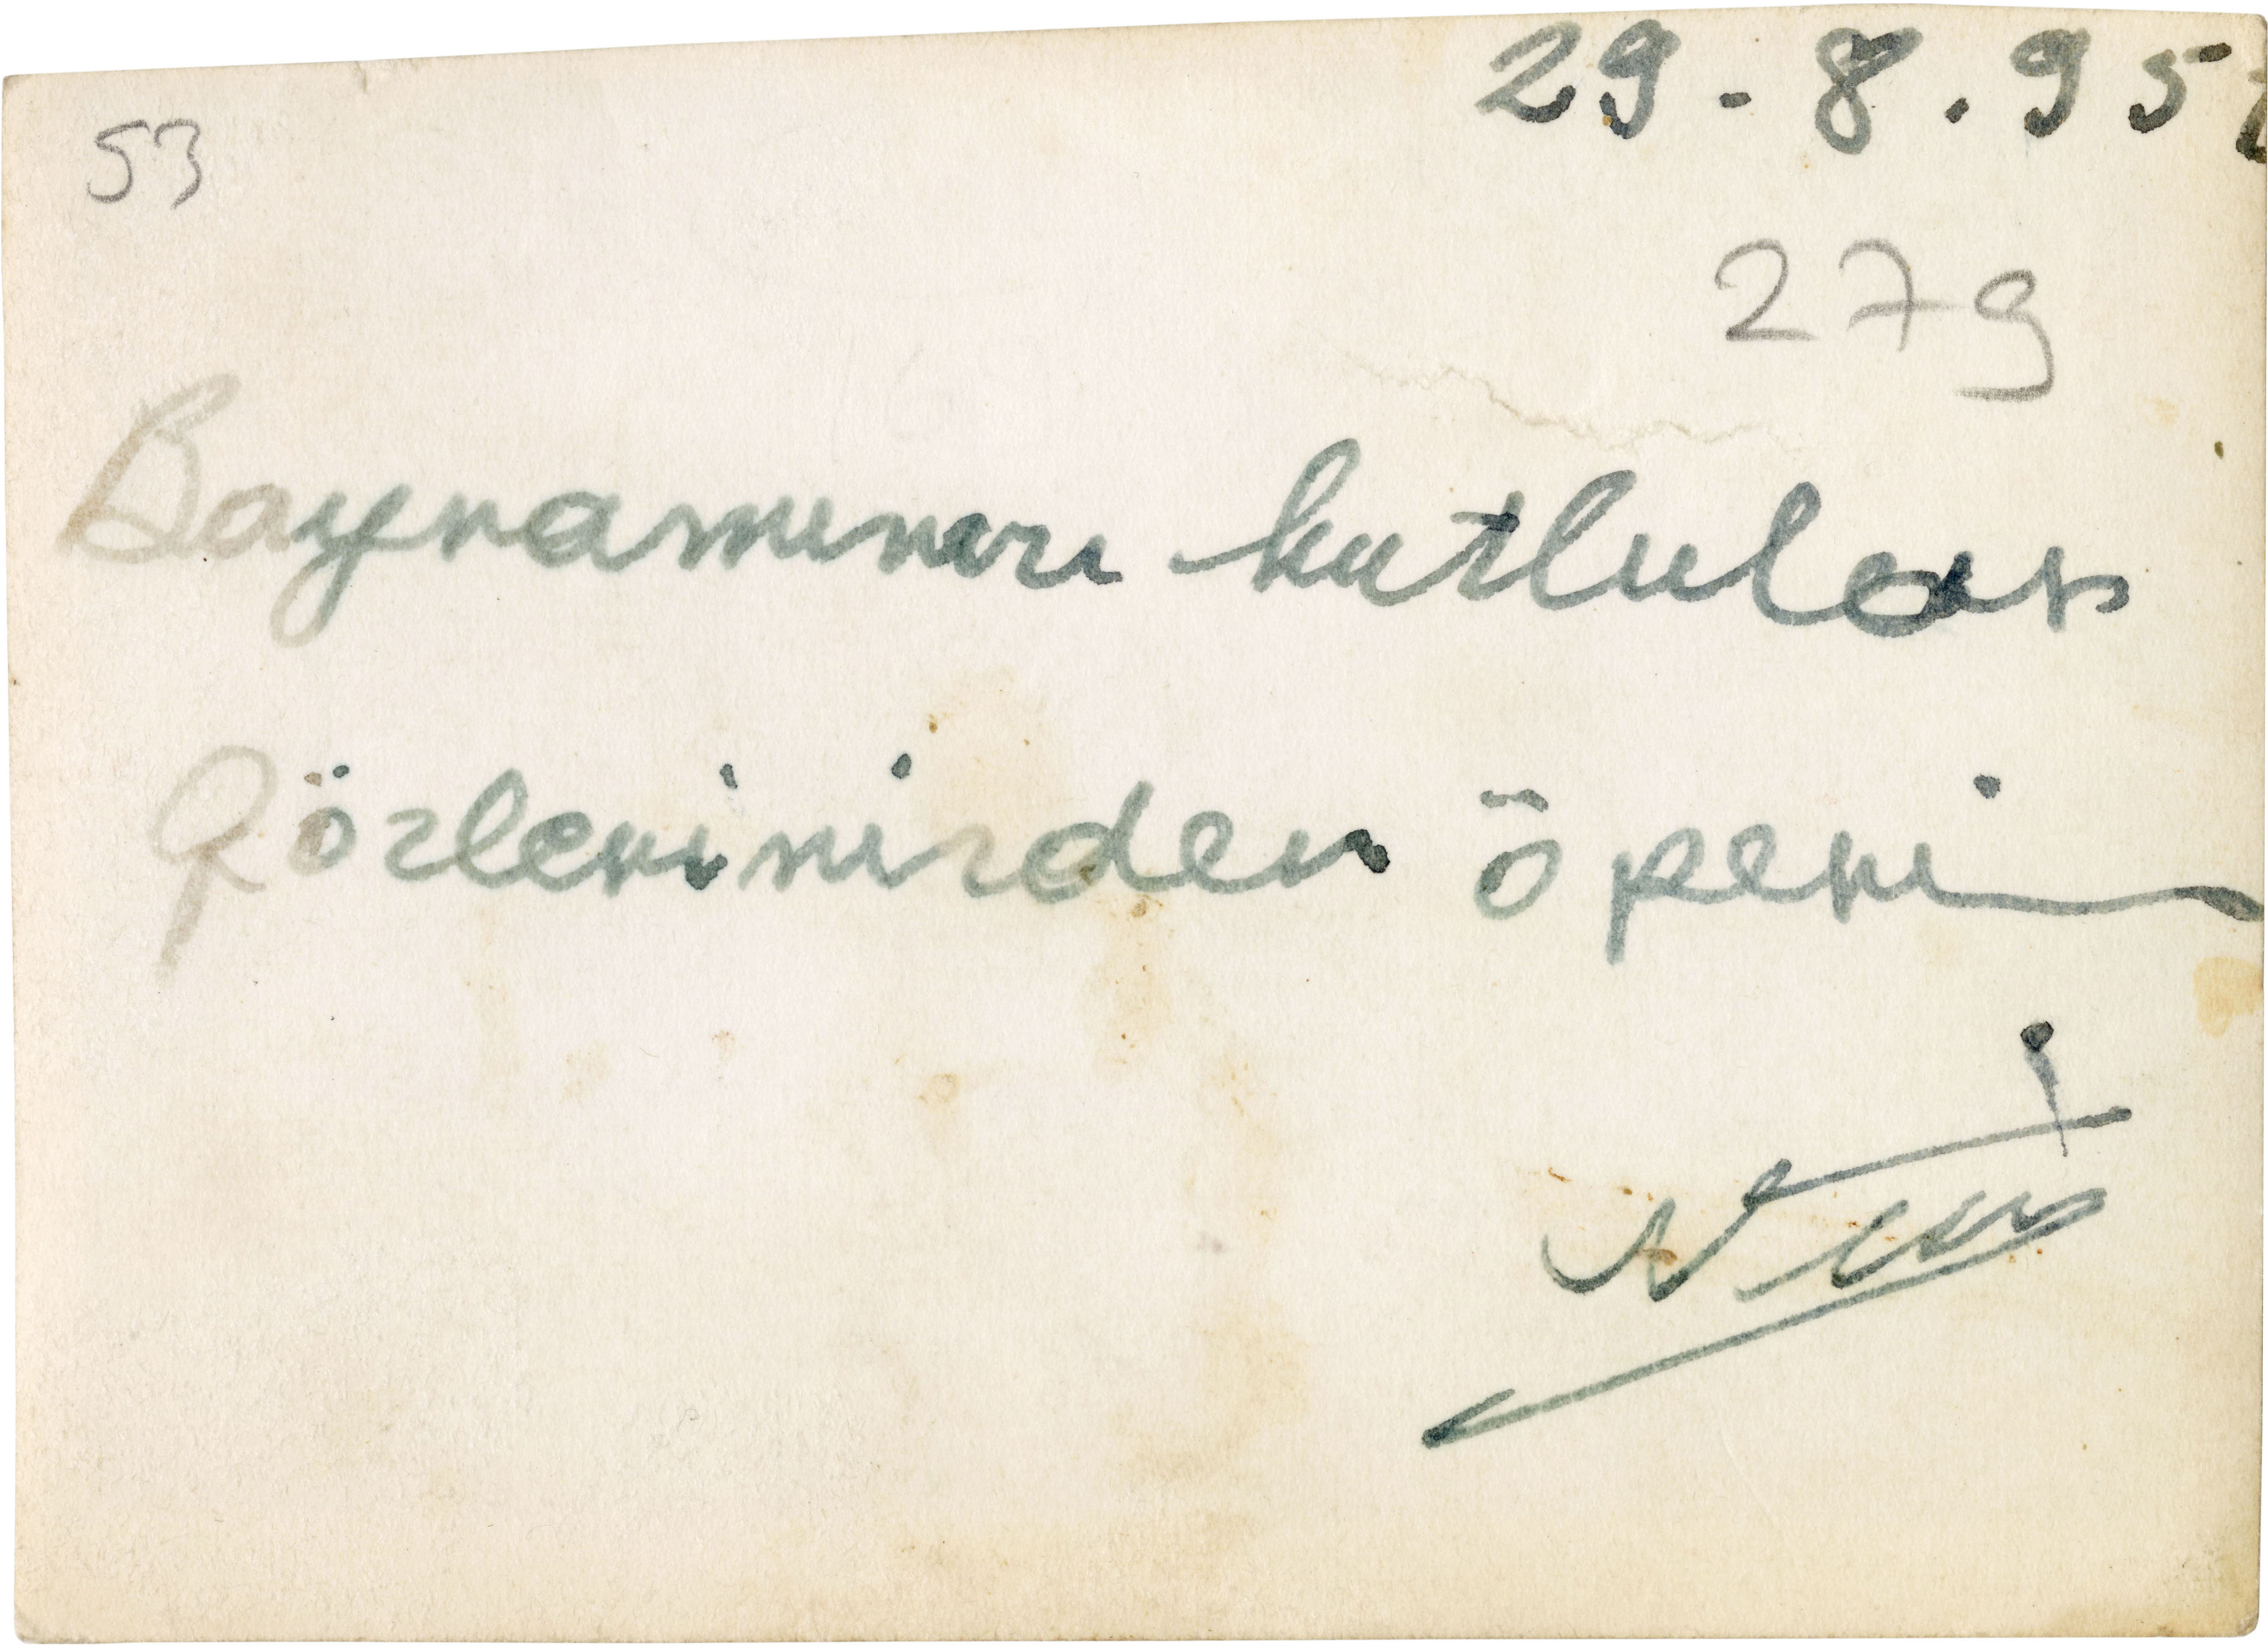 29.8.95
53
279
Bayramınızı kutlular
Gözlerinizden öperim